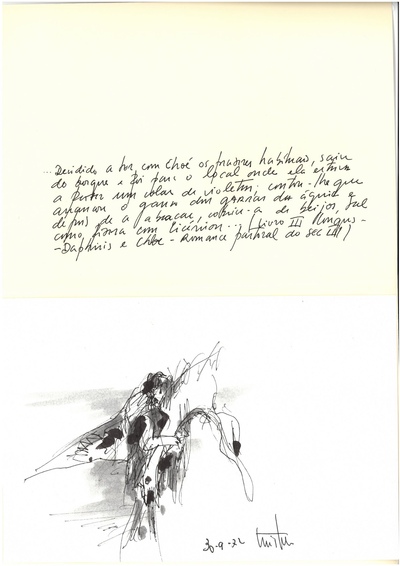 ...Decidido a ter com Cloé os prazeres habituais, saiu
do bosque e foi para o local onde ela estava
a tecer um colar de violetas; contou-lhe que
arrancara o ganso das garras da águia e
depois de a abraçar, cobriu-a de beijos, tal
como fizera com Licénion... (Livro III Longus-
-Daphnis e Chloe - Romance pastoral do sec
30-9-72